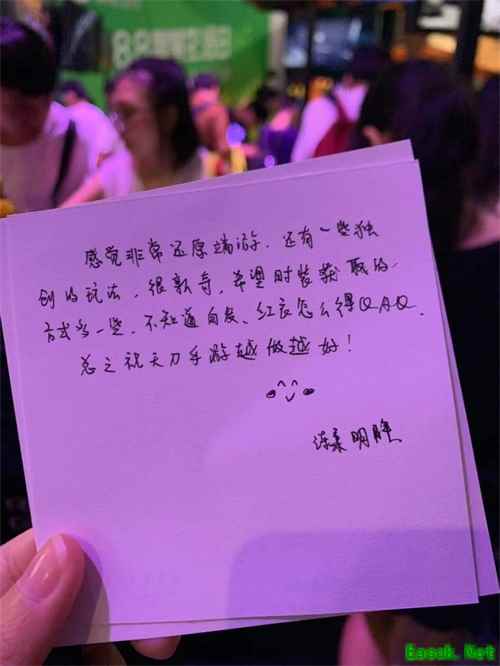 感觉非常还原端游，还有一些独
创的玩法，很新奇，希望时装获取的
方式多一些，不知道白发、红衣怎么得QAQ.
总之祝天刀手游越做越好！
明
Eacok.Net